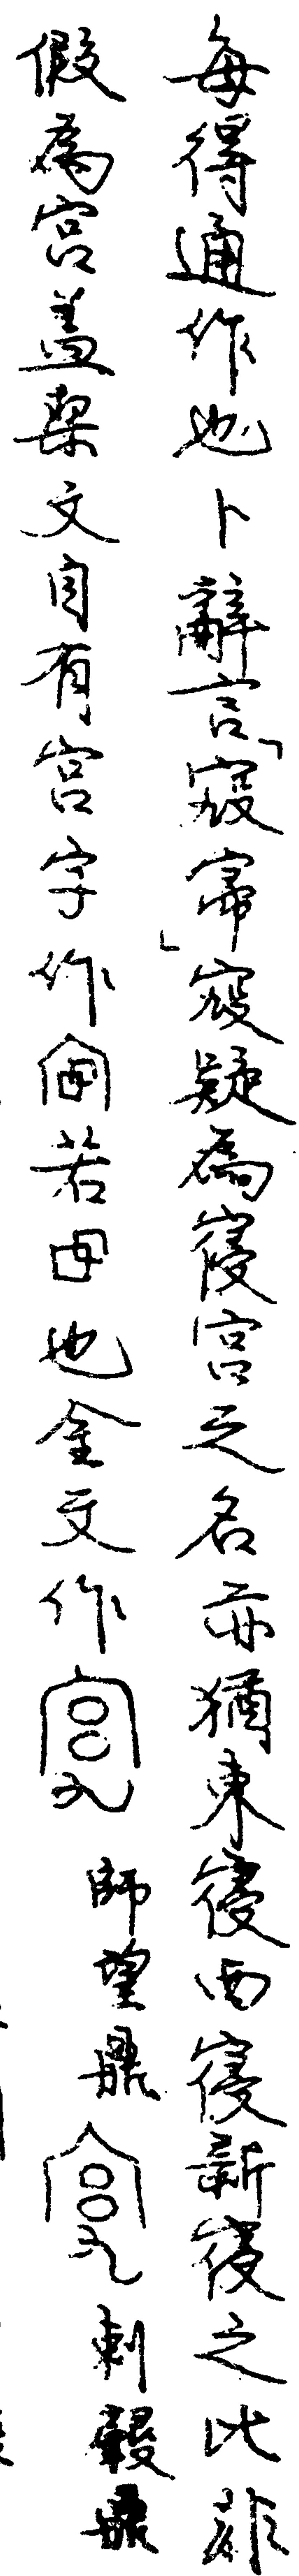 每得通作也卜辭言「寑帚」寑疑為寢宮之名亦猶東寢西寢新寢之比非
假為宮蓋栔文自有宮字作若也金文作師望鼎剌鼎